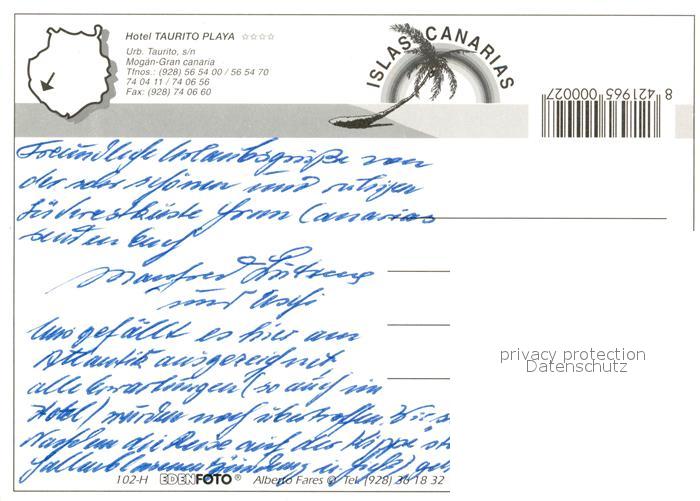 Hotel TAURITO PLAYA ☆☆☆☆
Urb. Taurito, s/n
Mogán-Gran canaria
Tfnos.: (928) 56 54 00 / 56 54 70
74 04 11 / 74 06 56
Fax: (928) 74 06 60
ISLAS CANARIAS
8 421965 000027
Freundliche Urlaubsgrüße von
der sehr schönen und ruhigen
Südwestküste Gran Canarias
senden Euch
Manfred
und Uschi
Uns gefällt es hier am
Atlantik ausgezeichnet
alle Erwartungen (so auch im
Hotel) wurden noch übertroffen.
Nachdem die Reise auf der Kippe
privacy protection
Datenschutz
102-H EDENFOTO® Alberto Fares © Tel. (928) 36 18 32